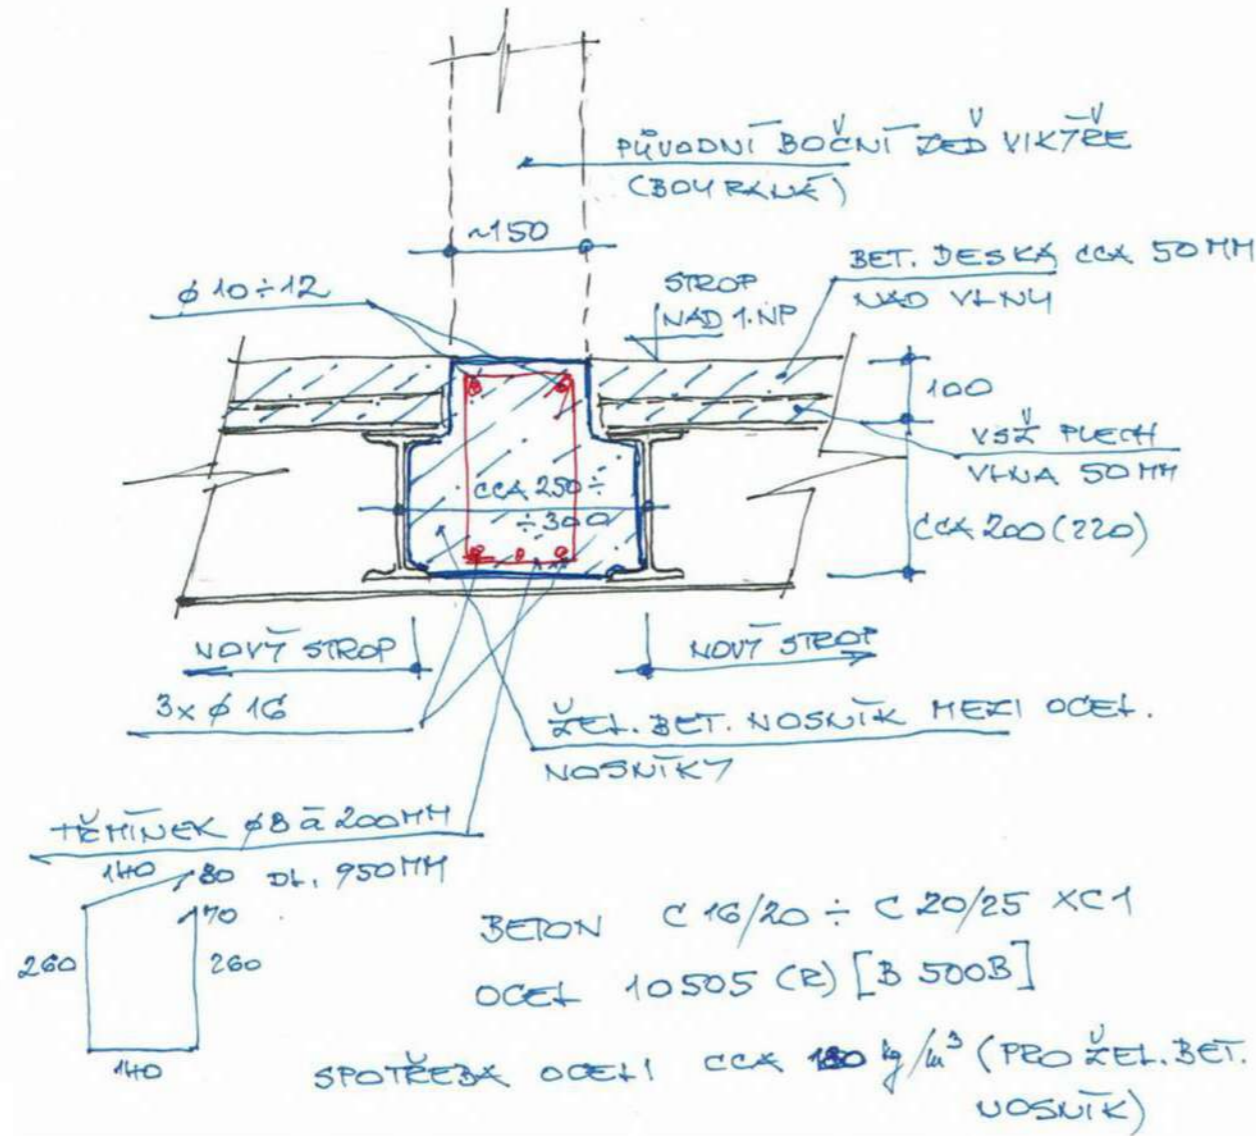 PŮVODNÍ BOČNÍ ZEĎ VIKÝŘE
(BOURANÁ)
~150
BET. DESKA CCA 50 MM
NAD VLNU
STROP
NAD 1.NP
ϕ 10÷12
100
VSŽ PLECH
VLNA 50 MM
CCA 250÷
÷300
CCA 200 (220)
NOVÝ STROP
NOVÝ STROP
3x ϕ 16
ŽEL. BET. NOSNÍK MEZI OCEL.
NOSNÍKY
TŘMÍNEK ϕ8 à 200MM
DL. 950MM
140
80
70
260
260
140
BETON C 16/20 ÷ C 20/25 XC1
OCEL 10505 (R) [B 500B]
SPOTŘEBA OCELI CCA kg/m³ (PRO ŽEL. BET.
NOSNÍK)